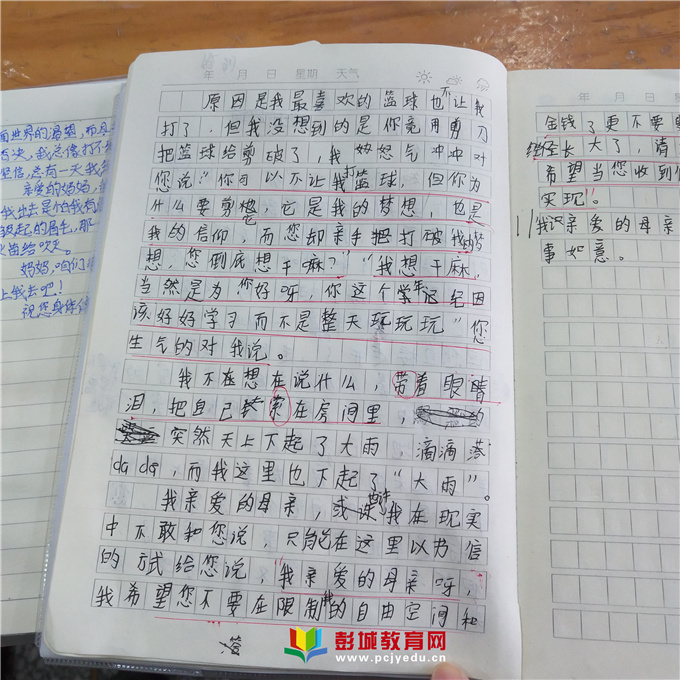 年 月 日 星期 天气
原因是我最喜欢的篮球也不让我
打了，但我没想到的是你竟用剪刀
把篮球给剪破了，我 怒气冲冲对
您说"你可以不让我打篮球，但你为
什么要剪它，它是我的梦想，也是
我的信仰，而您却亲手把打破我的梦
想，您倒底想干嘛？""我想干麻，
当然是为你好呀，你这个学年纪
该好好学习而不是整天玩玩玩"您
生气的对我说。
我不在想在说什么，带着眼睛
泪，把自己 在房间里，
突然天上下起了大雨，滴滴
dada，而我这里也下起了"大雨"。
我亲爱的母亲，或许我在现实
中不敢和您说，只能在这里以书信
的方式给您说，"我亲爱的母亲呀，
我希望您不要在限制我的自由空间和
年 月 日 星期
金钱了更不要
经长大了，请
希望当您收到
实现"。
我 亲爱的母亲
事如意。
面世界的渴望，而且
我总像打不
坚信，总有一天我
亲爱的妈妈，
我出去是怕我
妈妈，咱们
上我去吧！
祝您身体
彭城教育网
www.pcjyedu.cn